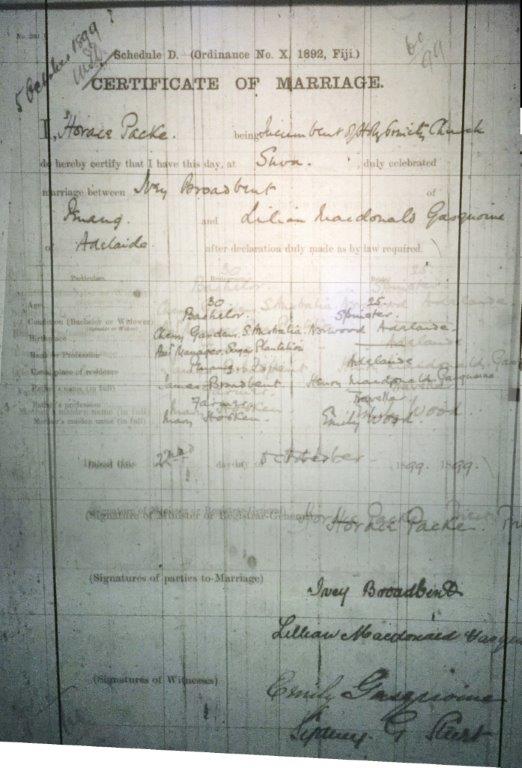 5 October 1899
60
99
Schedule D. (Ordinance No. X, 1892, Fiji.)
CERTIFICATE OF MARRIAGE.
I, Horace Packe. being Incumbent of Holy Trinity Church
do hereby certify that I have this day, at Suva. duly celebrated
marriage between Ivey Broadbent of
Penang. and Lilian Macdonald Gasquoine
of Adelaide after declaration duly made as by law required.
Particulars.
Age 30 25
Condition (Bachelor or Widower) Bachelor. Spinster.
Birthplace Cherry Gardens, S. Australia Norwood Adelaide
Rank or Profession Manager, Sugar Plantation
Usual place of residence Penang Adelaide
Father's name (in full) James Broadbent Henry Macdonald Gasquoine
Father's profession Farmer Traveller
Mother's maiden name (in full) Mary Emily Wood
Dated this 22nd day of October 1899.
(Signature of Minister or Registrar-General) Horace Packe.
(Signatures of parties to Marriage)
Ivey Broadbent
Lillian Macdonald
(Signatures of Witnesses)
Emily Gasquoine
Sydney G